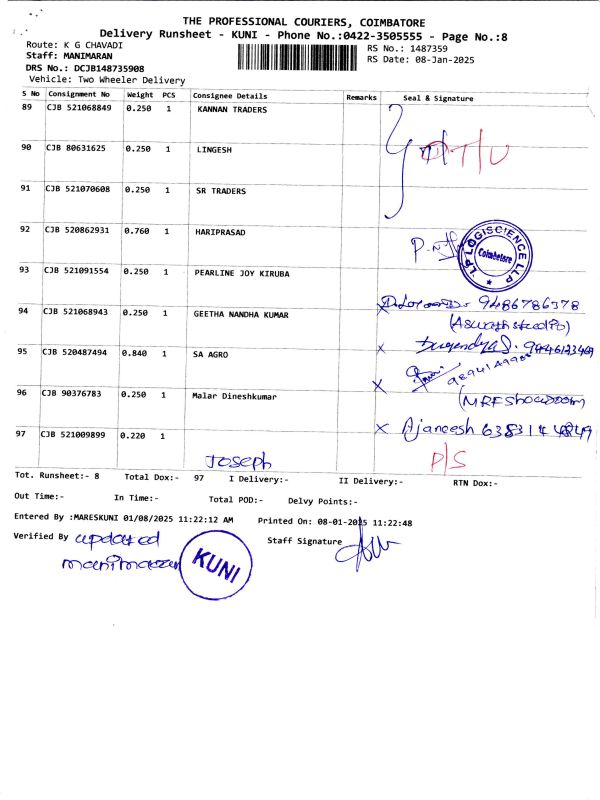 THE PROFESSIONAL COURIERS, COIMBATORE
Delivery Runsheet - KUNI - Phone No.:0422-3505555 - Page No.:8
Route: K G CHAVADI
RS No.: 1487359
Staff: MANIMARAN
RS Date: 08-Jan-2025
DRS No.: DCJB148735908
Vehicle: Two Wheeler Delivery
S No Consignment No Weight PCS Consignee Details Remarks Seal & Signature
89 CJB 521068849 0.250 1 KANNAN TRADERS
90 CJB 80631625 0.250 1 LINGESH
91 CJB 521070608 0.250 1 SR TRADERS
92 CJB 520862931 0.760 1 HARIPRASAD
LP LOGISCIENCE LLP
Coimbatore
93 CJB 521091554 0.250 1 PEARLINE JOY KIRUBA
94 CJB 521068943 0.250 1 GEETHA NANDHA KUMAR
9486786378
95 CJB 520487494 0.840 1 SA AGRO
96 CJB 90376783 0.250 1 Malar Dineshkumar
(MRF Showroom)
97 CJB 521009899 0.220 1
X Ajaneesh
Joseph
P/S
Tot. Runsheet:- 8 Total Dox:- 97 I Delivery:- II Delivery:- RTN Dox:-
Out Time:- In Time:- Total POD:- Delvy Points:-
Entered By :MARESKUNI 01/08/2025 11:22:12 AM Printed On: 08-01-2025 11:22:48
Verified By updated Staff Signature
manimaran
KUNI